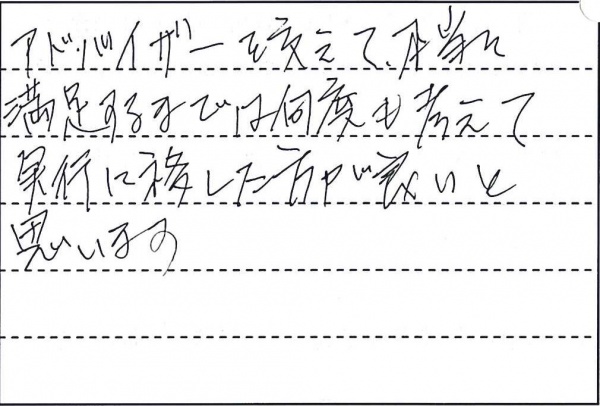 アドバイザーを変えて、本当に
満足するまでは何度も考えて
実行に移した方が良いと
思います